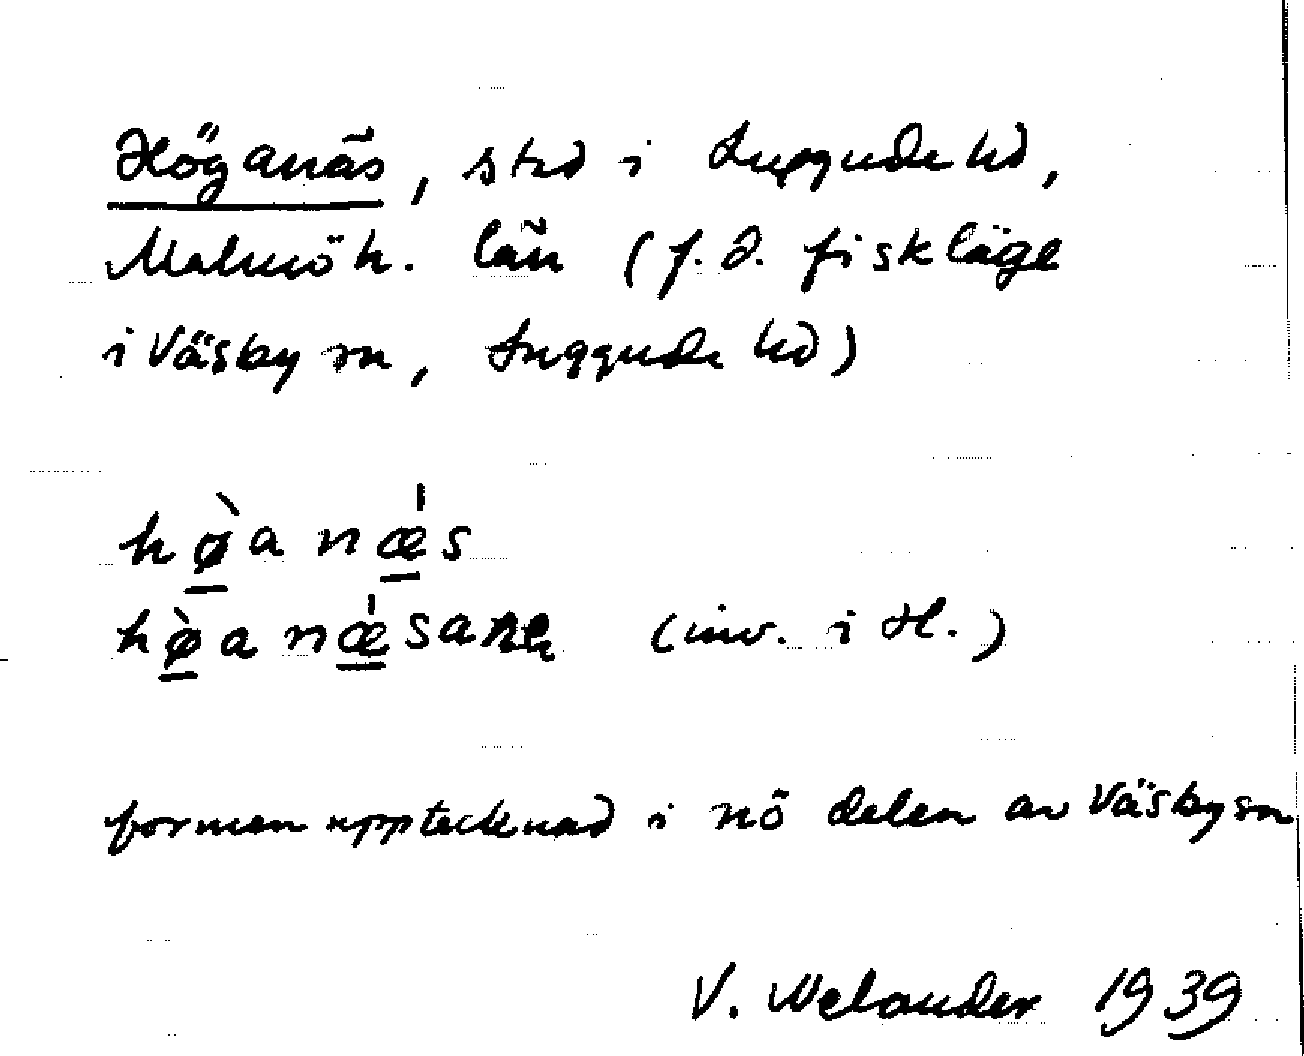 Höganäs, std i Luggude hd,
Malmöh. län (f.d. fiskläge
i Väsby sn, Luggude hd)
hø̀a næ's
hø̀a næ'sare (inv. i H.)
formen upptecknad i nö delen av Väsby sn
V. Melander 1939